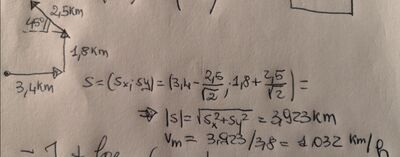 2,5km
45°
1,8km
3,4km
S = (Sx; Sy) = (3,4 - 2,5/√2 ; 1,8 + 2,5/√2) =
⇒ |S| = √Sx²+Sy² = 3,923 km
Vm = 3,923/3,8 = 1.032 km/h